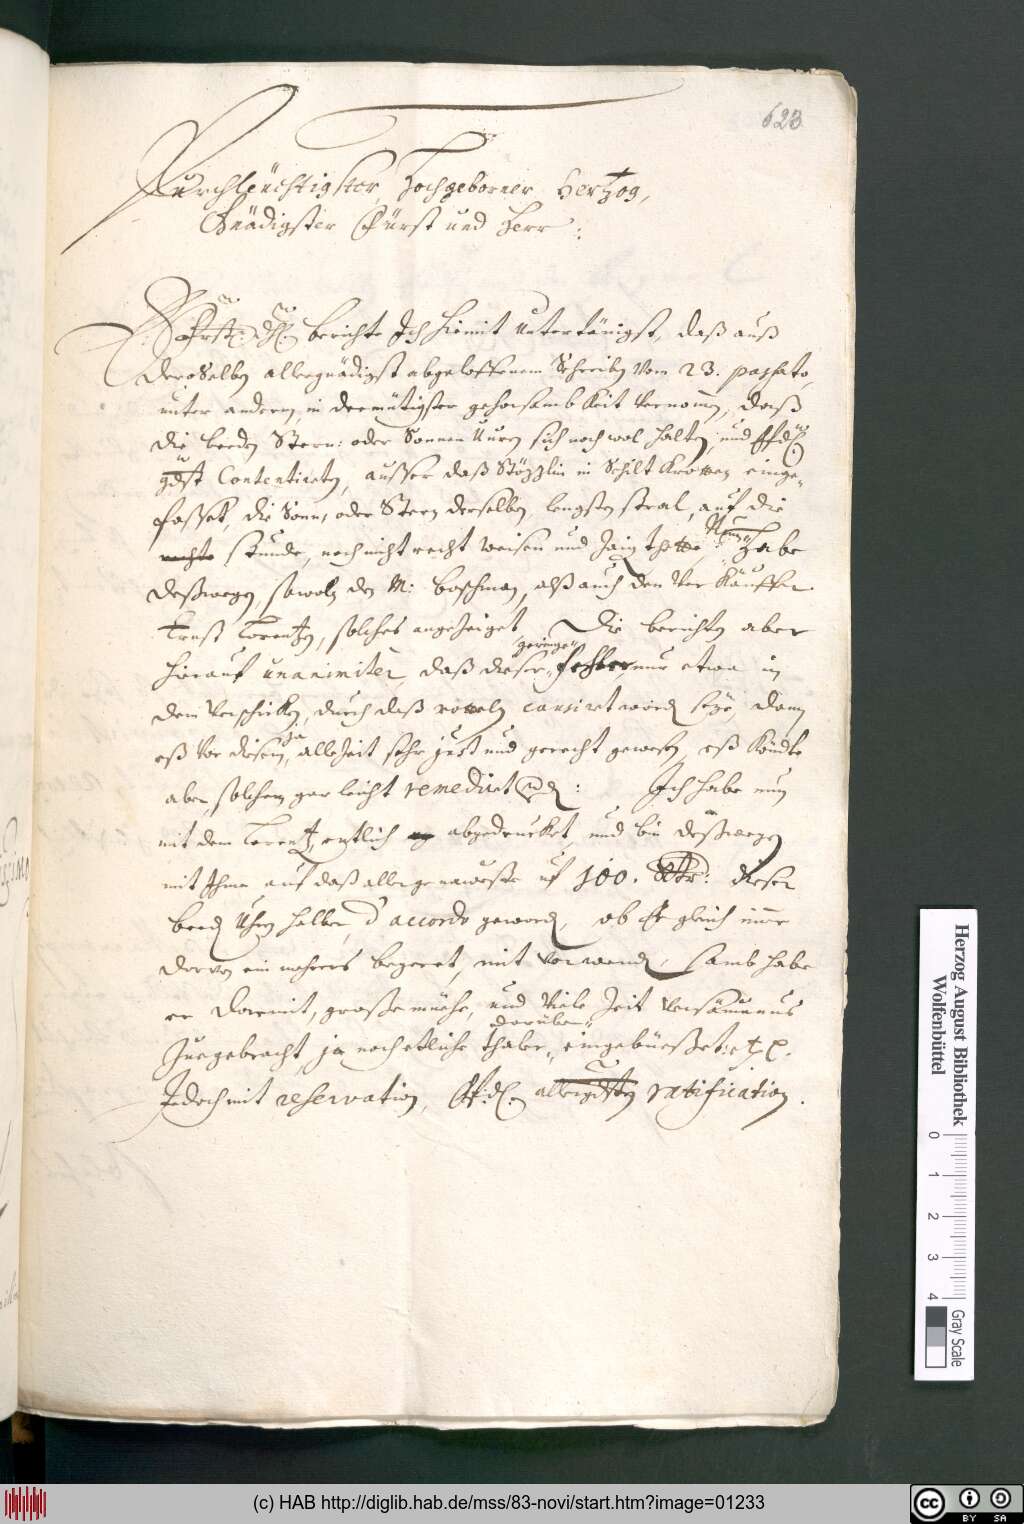 623
Durchleüchtigster, Hochgeborner Hertzog,
Gnädigster Fürst und Herr:
berichte Ich hiemit Untertänigst, daß auß
deroselben allergnädigst abgelossenem Schreiben vom 23. passato,
unter andern, in demütigster gehorsambkeit vernommen, daß
die beeden Stern: oder Sonnen Uuren sich noch wol halten, und
gdst Contentireten, ausser daß Stözzlin in Schilt Krotten einge-
fasset, die Sonn, oder Stern derselben, lengsten stral, auf die
rechte stunde, noch nicht recht weisen und Habe
deßwegen, sowoln den M: Boschman, alß auch den Verkäuffer
Ernst Lorentzen, solches angezeiget, Die berichten aber
hierauf unanimiter, daß dieser geringe fehler, nur etwa in
dem Verschicken, durch daß rotteln causiret worden seye, dann
eß vor disem, allezeit sehr just und gerecht gewesen, eß Köndte
aber solchem gar leicht remedirt :
Ich habe nun
mit dem Lorentz, entlich abgedrucket, und bin deßwegen
mit Ihme auf daß allergenaweste uf 100. dieser
beeden Uhren halber, d'accordo geworden, ob Er gleich immer
dorvon ein mehrers begeret, mit vorwenden, samb habe
er darmit, grosse mühe, und viele Zeit versäumnus
Zuegebracht, ja noch etliche thaler, darüber eingebüesset: etc.
Jedoch mit reservation, allergdsten ratification.
Herzog August Bibliothek
Wolfenbüttel
0 1 2 3 4
Gray Scale
(c) HAB http://diglib.hab.de/mss/83-novi/start.htm?image=01233
cc BY SA